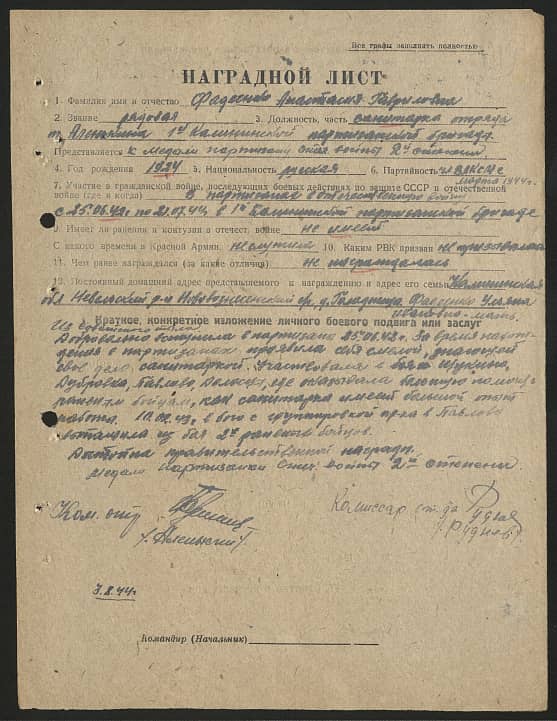 Все графы заполнять полностью
НАГРАДНОЙ ЛИСТ
1. Фамилия имя и отчество Фадеенко Анастасия Гавриловна
2. Звание рядовая 3. Должность, часть санитарка отряда
1й Калининской партизанской бригады
Представляется к медали партизану Отеч войны 2й степени
4. Год рождения 1924 5. Национальность русская 6. Партийность чл ВЛКСМ с
марта 1944г.
7. Участие в гражданской войне, последующих боевых действиях по защите СССР и отечественной
войне (где и когда) В партизанах в отечественную войну
с 25.06.42г. по 21.07.44г. в 1й Калининской партизанской бригаде
8. Имеет ли ранения и контузии в отечест. войне не имеет
9. С какого времени в Красной Армии не служила 10. Каким РВК призван не призывалась
11. Чем ранее награждался (за какие отличия) не награждалась
12. Постоянный домашний адрес представляемого к награждению и адрес его семьи Калининская
обл Невельский р-н д. Фадеенко Ульяна
Ивановна - мать.
Краткое, конкретное изложение личного боевого подвига или заслуг
Добровольно вступила в партизаны 25.06.42г. За время нахож-
дения в партизанах проявила себя смелой, знающей
свое дело санитаркой. Участвовала в боях Щукино,
Дубровка, Павлово, где оказывала большую помощь
раненым бойцам, как санитарка имеет большой опыт
работы. 10.02.43г. в бою с группировкой пр-ка в Павлово
вытащила из боя 2х раненых бойцов.
Достойна правительственной награды
медали Партизанки Отеч. войны 2й степени
Ком. отр.
Комиссар отряда
3.8.44г.
Командир (Начальник)